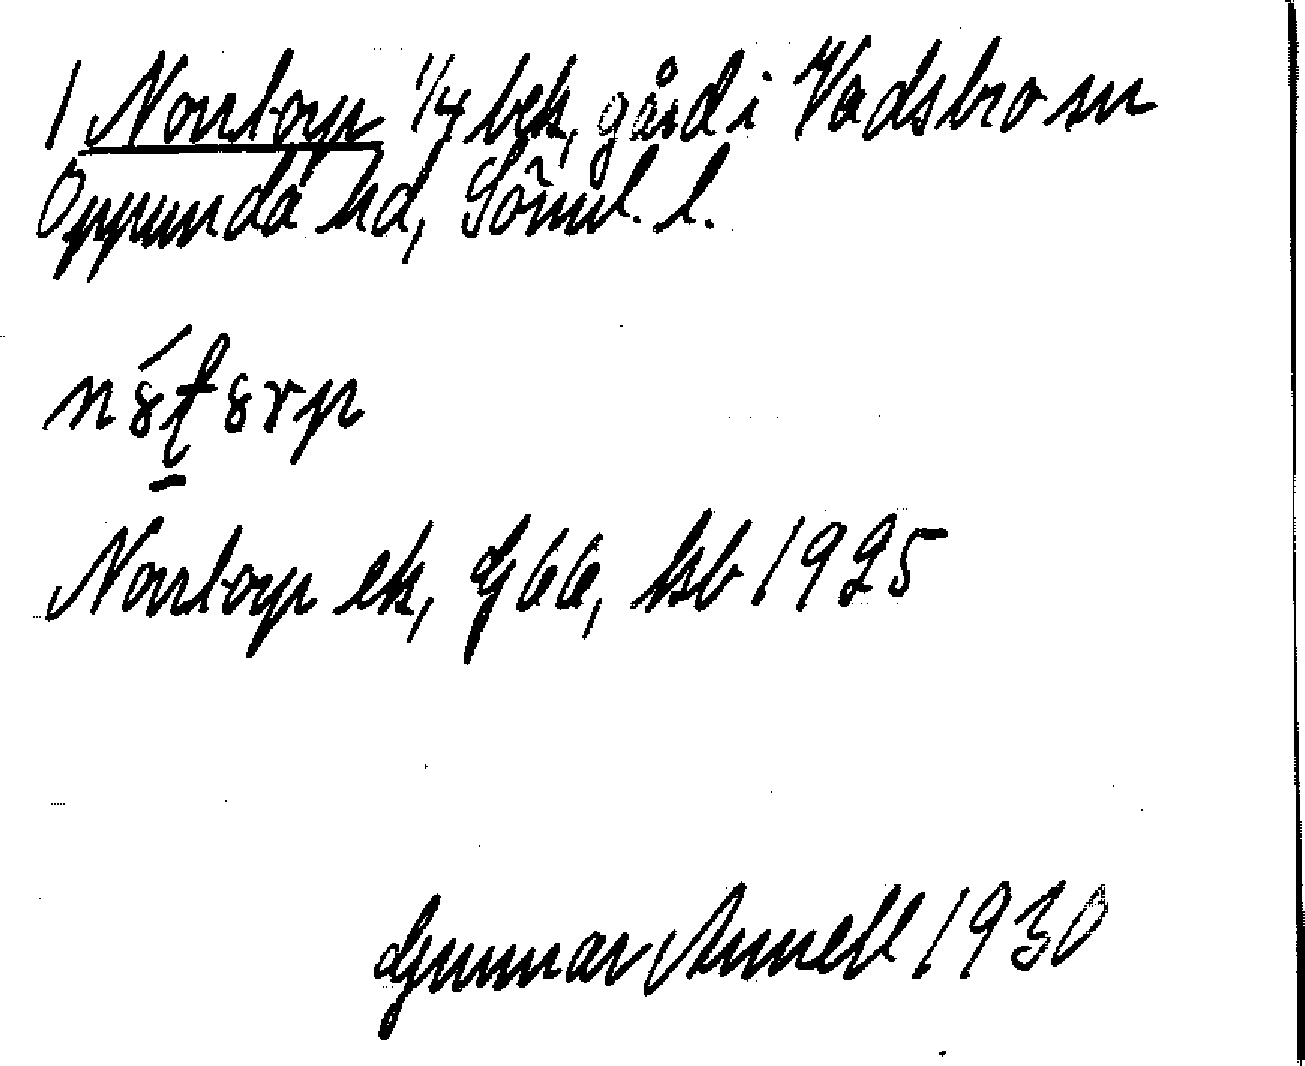 1 Norrtorp 1/4 bek. gård i Vadsbro sn
Oppunda hd, Söml. l.
Norrtorp ek, G 66, ksb 1925
Gunnar Annell 1930